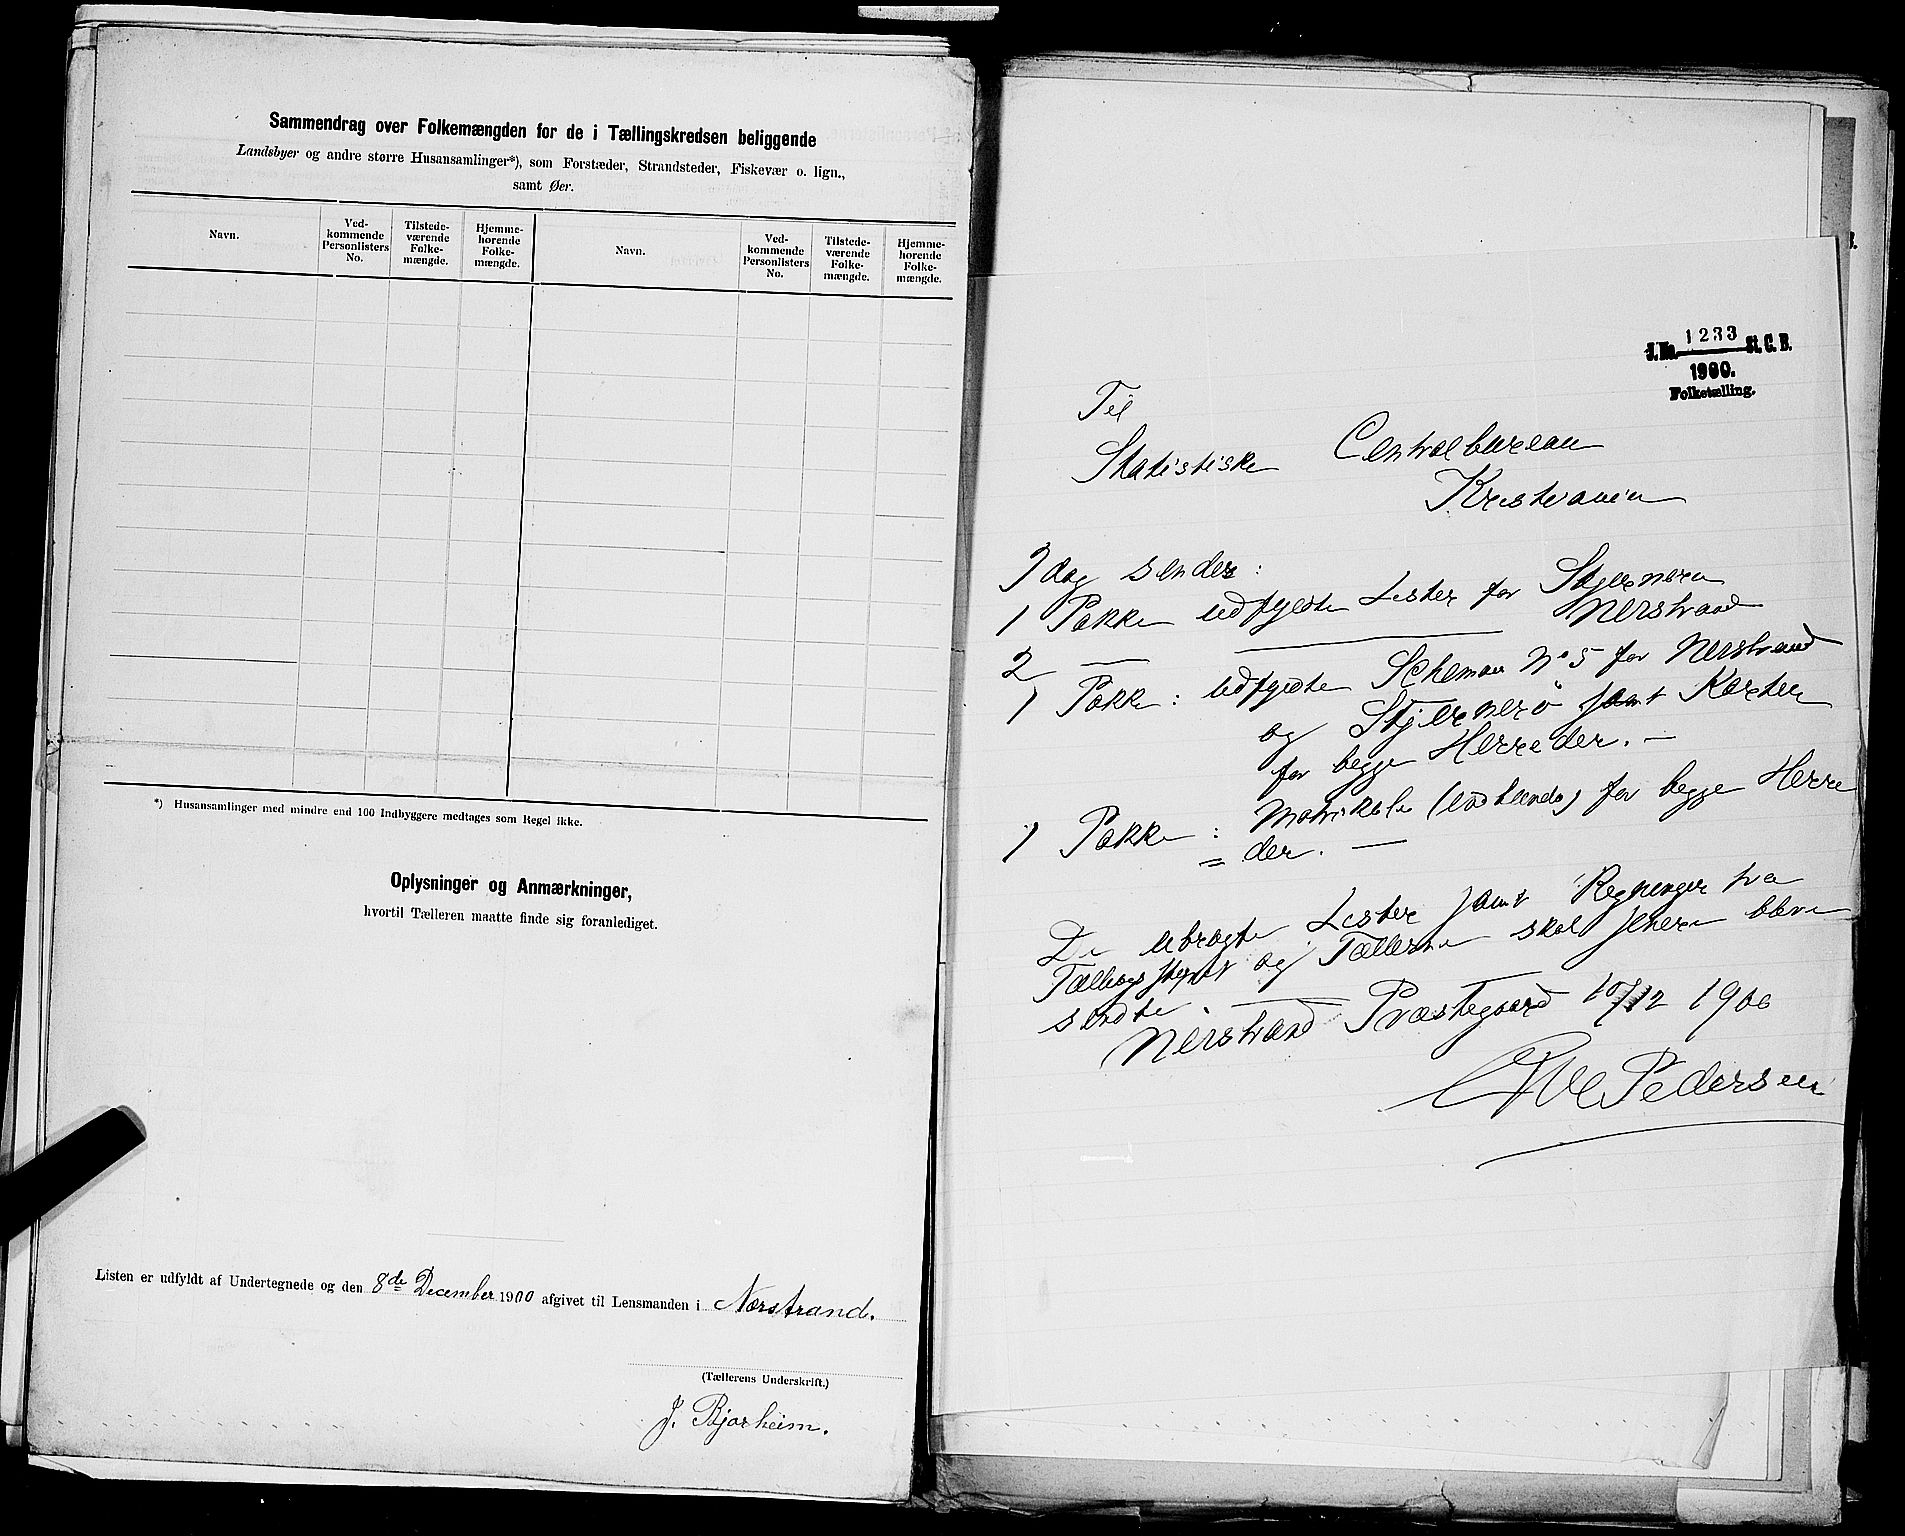 Sammendrag over Folkemængden for de i Tællingskredsen beliggende
Landsbyer og andre større Husansamlinger*), som Forstæder, Strandsteder, Fiskevær o. lign.,
samt Øer.
Navn.
Ved-
kommende
Personlisters
No.
Tilstede-
værende
Folke-
mængde.
Hjemme-
hørende
Folke-
mængde.
Navn.
Ved-
kommende
Personlisters
No.
Tilstede-
værende
Folke-
mængde.
Hjemme-
hørende
Folke-
mængde.
*) Husansamlinger med mindre end 100 Indbyggere medtages som Regel ikke.
Oplysninger og Anmærkninger,
hvortil Tælleren maatte finde sig foranlediget.
Listen er udfyldt af Undertegnede og den 8de December 1900 afgivet til Lensmanden i Nærstrand.
(Tællerens Underskrift.)
J. Bjorheim.
J. No. 1233 St. C. B.
1900.
Folketælling.
Til
Statistiske Centralbureau
Kristiania
Idag sendes:
1 Pakke udfyldte Lister for
Nerstrand
2
1 Pakke: udfyldte Schemaer No 5 for Nerstrand
og Stjernerö samt Karter
for begge Herreder. —
1 Pakke: Matrikele for begge Herre
= der. —
De ubrugte Lister samt Regninger fra
og Tællerne skal senere blive
sendte
Nerstrand Præstegaard 10/12 1900
Pedersen